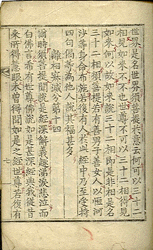 世界是名世界須菩提於意云何可以三十二
相見如來不不也世尊不可以三十二相得見
如來何以故如來說三十二相即是非相是名
三十二相須菩提若有善男子善女人以恒河
沙等身命布施若復有人於此經中乃至受持
四句偈等為他人說其福甚多
離相寂滅分第十四
爾時須菩提聞說是經深解義趣涕淚悲泣而
白佛言希有世尊佛說如是甚深經典我從昔
來所得慧眼未曾得聞如是之經世尊若復有